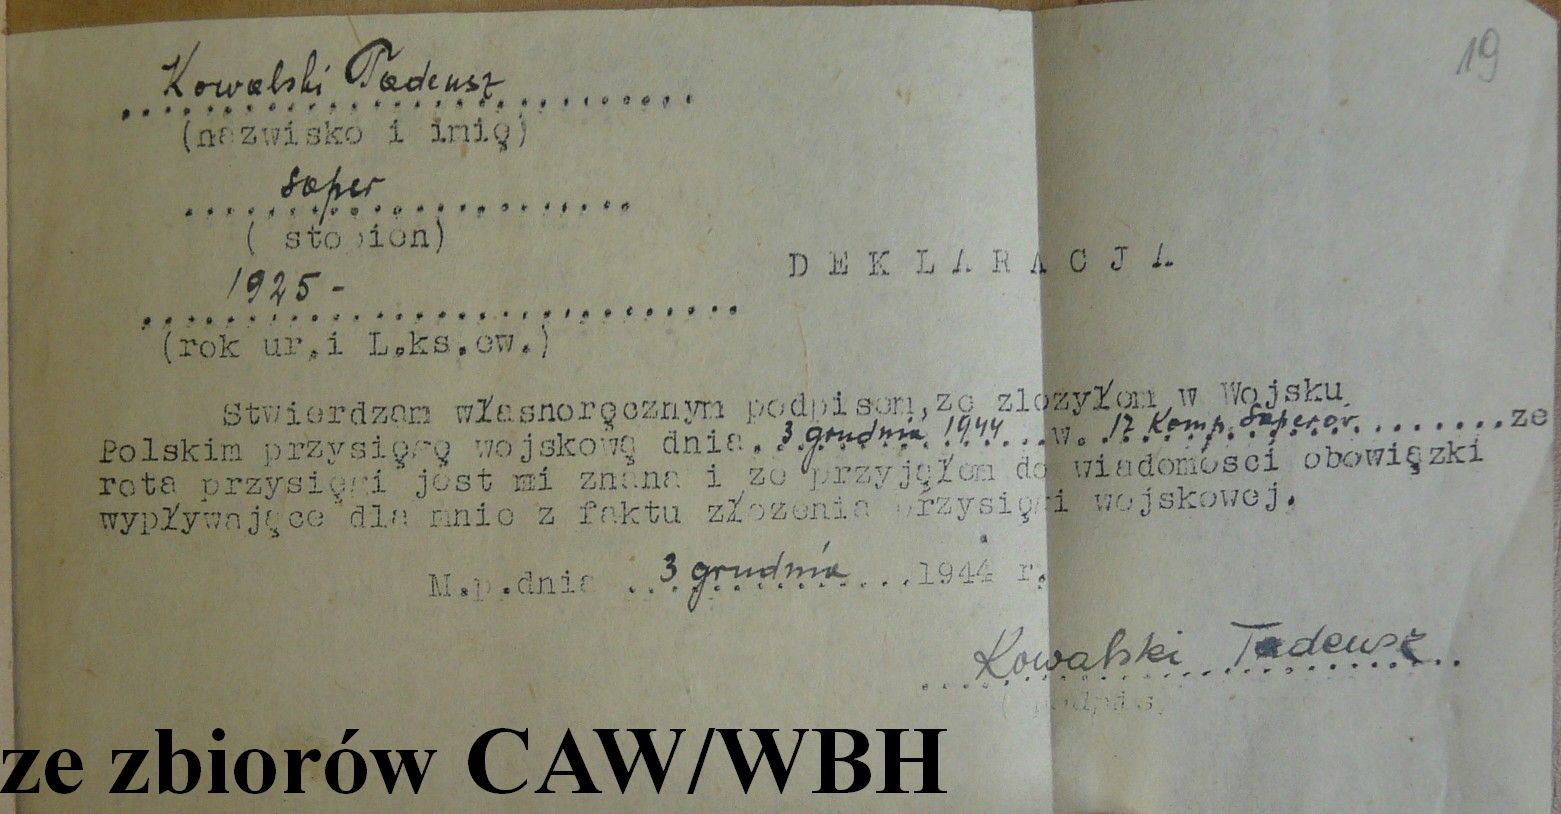 19
Kowalski Tadeusz
(nazwisko i imię)
saper
( stopion)
1925 -
(rok ur.i L.ks.ow.)
D E K L A R A C J A
Stwierdzam własnoręcznym podpisom,zo zlozyłom w Wojsku
Polskim przysięgę wojskową dnia 3 grudnia 1944 w. 17 Komp. Saperów ze
rota przysięgi jost mi znana i zo przyjęłom do wiadomosci obowiązki
wypływające dla mnio z faktu złozenia przysięgi wojskowoj.
M.p.dnia 3 grudnia 1944 r.
Kowalski Tadeusz
(podpis)
ze zbiorów CAW/WBH